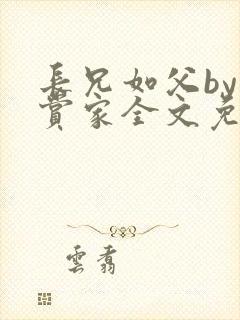 長兄如父by
賞家全文免
雲翥